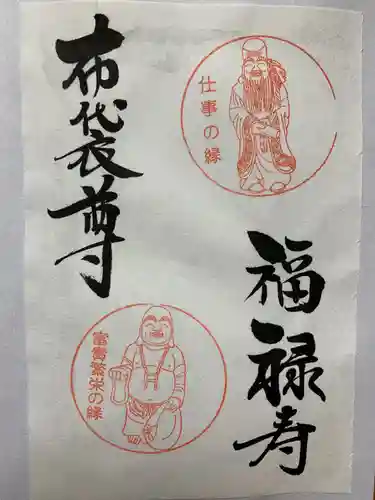 仕事の縁
福禄寿
布袋尊
富貴繁栄の縁